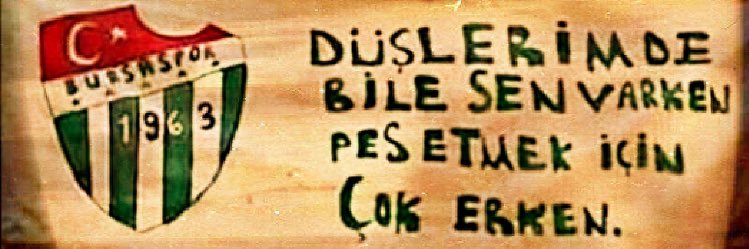 BURSASPOR
1963
DÜŞLERİMDE
BİLE SEN VARKEN
PES ETMEK İÇİN
ÇOK ERKEN.